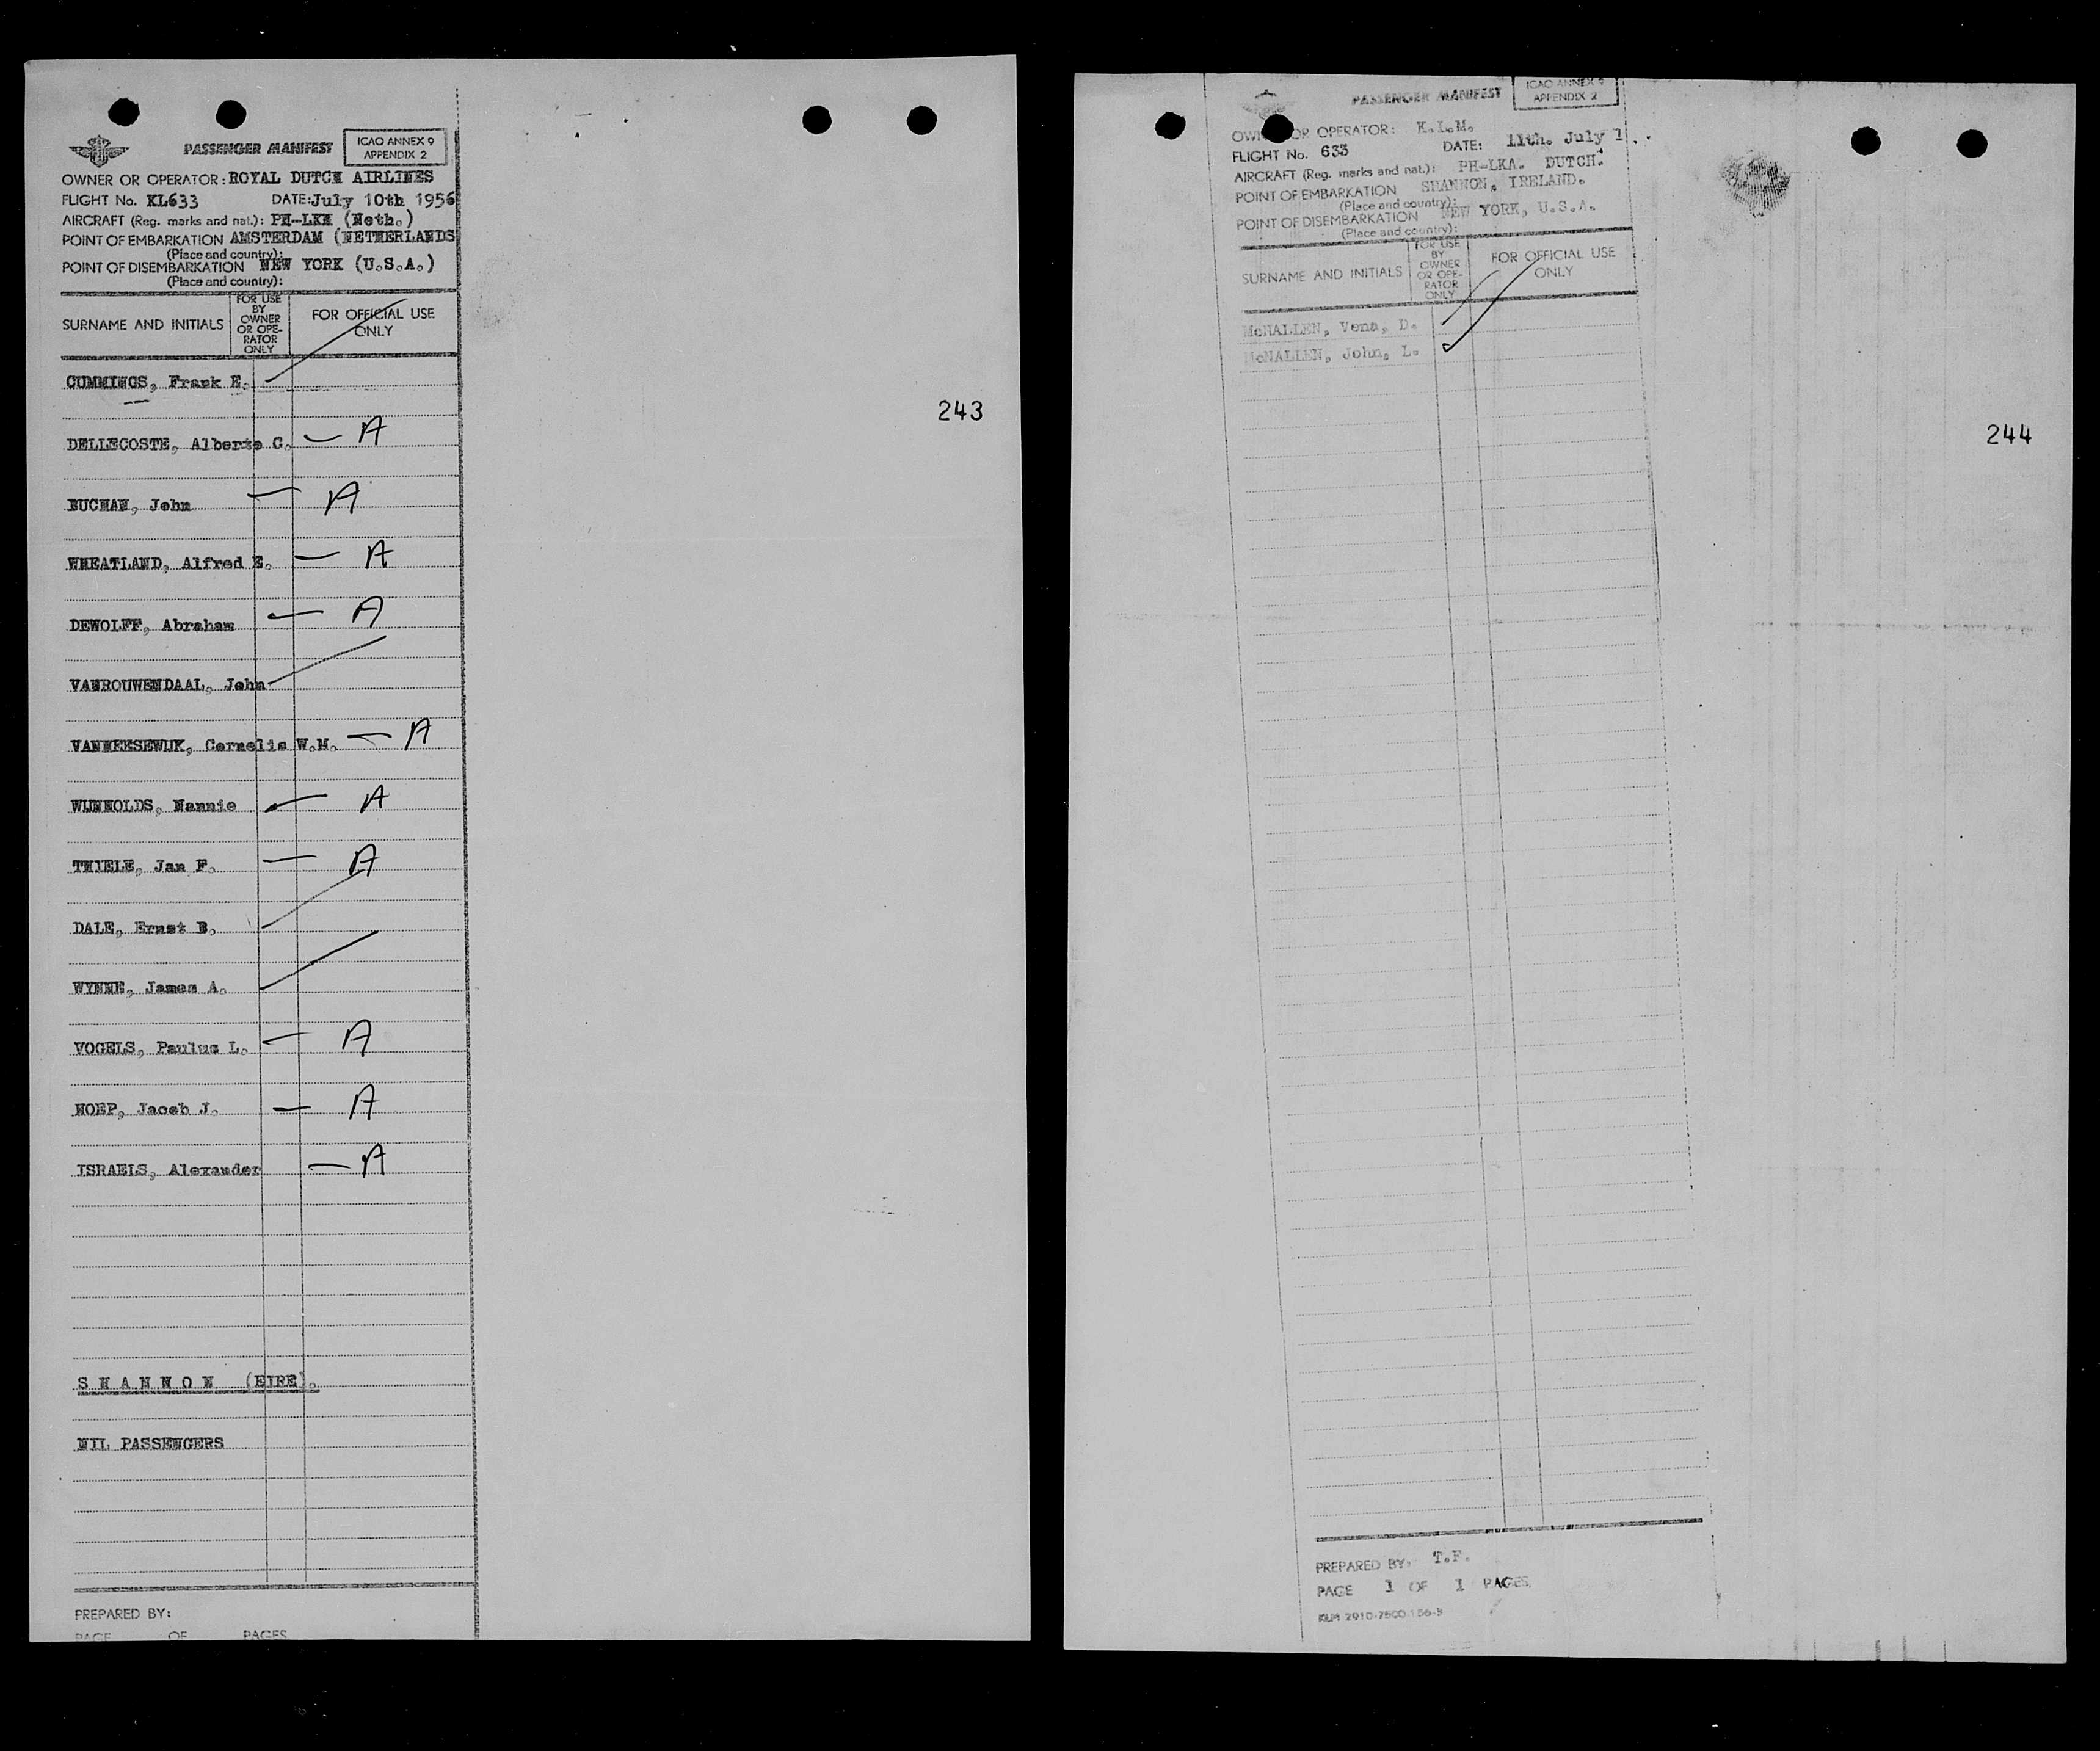 PASSENGER MANIFEST
ICAO ANNEX 9
APPENDIX 2
OWNER OR OPERATOR: ROYAL DUTCH AIRLINES
FLIGHT No. KL633 DATE: July 10th 1956
AIRCRAFT (Reg. marks and nat.): (Neth.)
POINT OF EMBARKATION AMSTERDAM (NETHERLANDS
(Place and country):
POINT OF DISEMBARKATION NEW YORK (U.S.A.)
(Place and country):
SURNAME AND INITIALS
FOR USE
BY
OWNER
OR OPE-
RATOR
ONLY
FOR OFFICIAL USE
ONLY
CUMMINGS, Frank E.
DELLECOSTE, Alberto C. — A
BUCHAN, John — A
WHEATLAND, Alfred E. — A
DEWOLFF, Abraham — A
VANROUWENDAAL, John
VANHEESEWIJK, Cornelis W.M. — A
WIJNHOLDS, Nannie — A
THIELE, Jan F. — A
DALE, Ernst B.
WYNNE, James A.
VOGELS, Paulus L. — A
HOEP, Jacob J. — A
ISRAELS, Alexander — A
S H A N N O N (EIRE).
NIL PASSENGERS
PREPARED BY:
PAGE OF PAGES
243
PASSENGER MANIFEST
ICAO ANNEX 9
APPENDIX 2
OR OPERATOR: K.L.M.
FLIGHT No. 633 DATE: 11th. July 1
AIRCRAFT (Reg. marks and nat.): PH-LKA. DUTCH.
POINT OF EMBARKATION SHANNON, IRELAND.
(Place and country):
POINT OF DISEMBARKATION NEW YORK, U.S.A.
(Place and country):
SURNAME AND INITIALS
FOR USE
BY
OWNER
OR OPE-
RATOR
ONLY
FOR OFFICIAL USE
ONLY
McNALLEN, Vena, D.
McNALLEN, John, L.
244
PREPARED BY. T.F.
PAGE 1 OF 1 PAGES